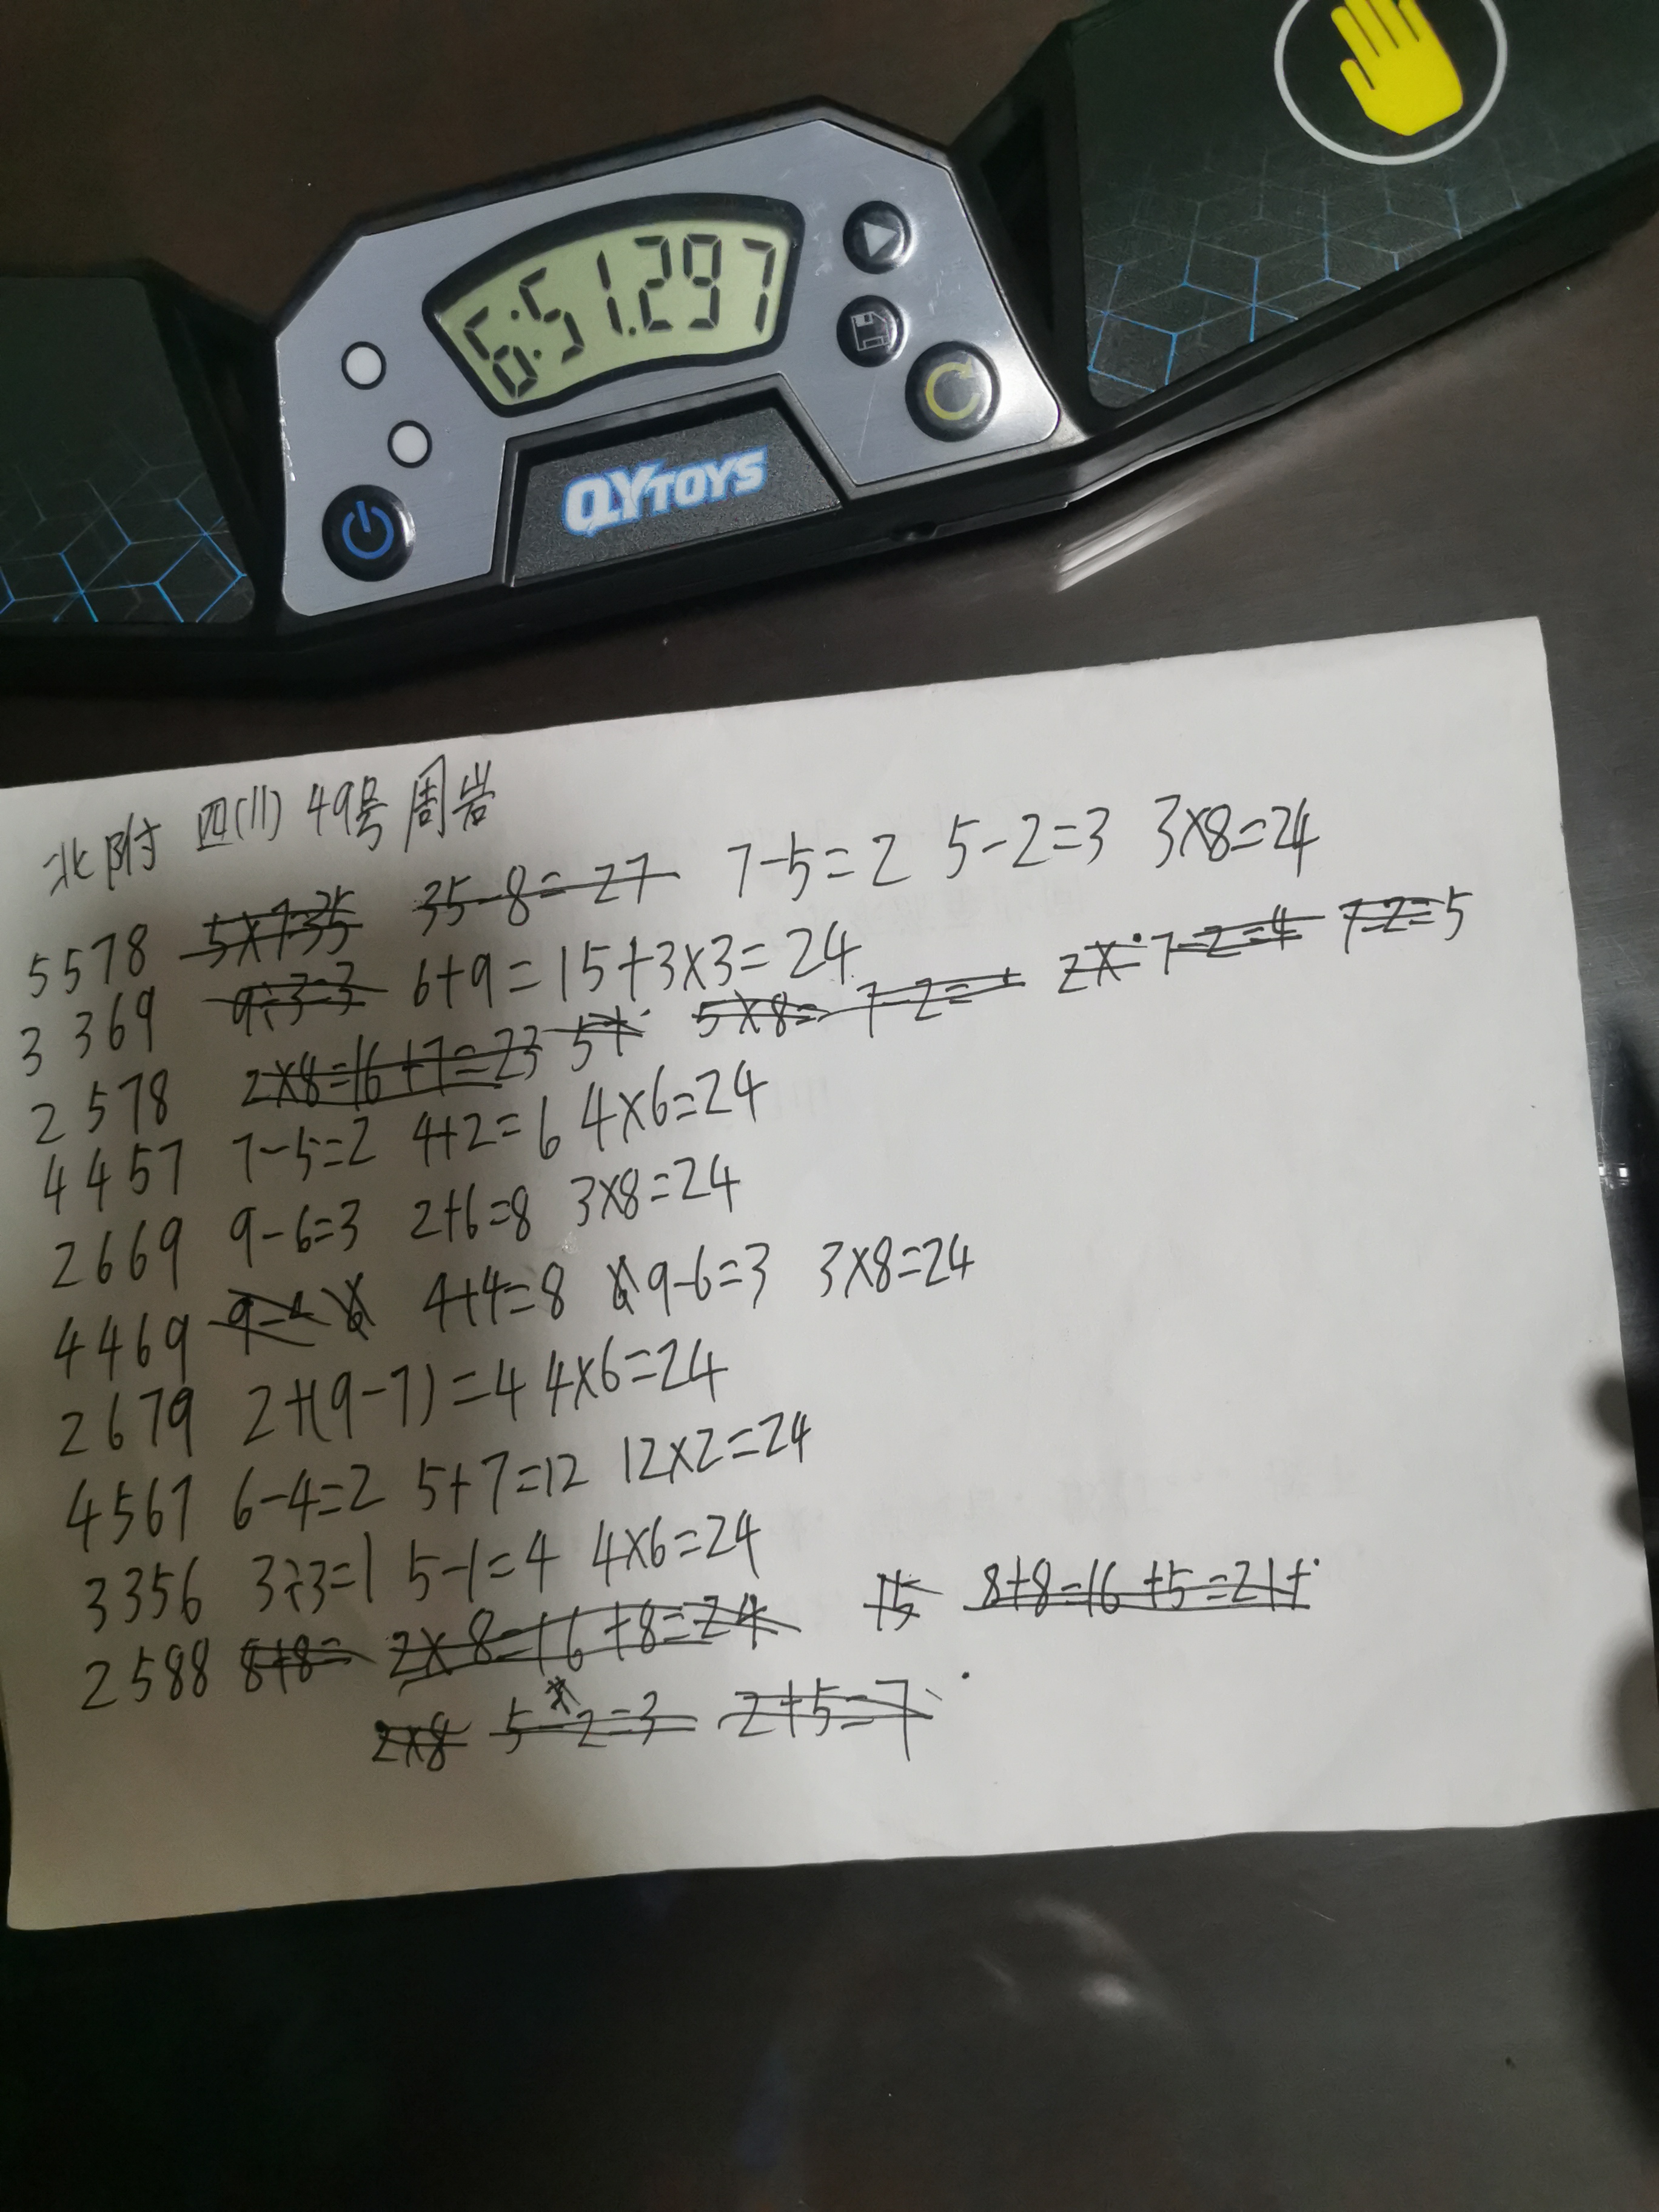 6:51.297
QYTOYS
北附 四(11) 49号 周岩
5578 5×7=35 35-8=27 7-5=2 5-2=3 3×8=24
3369 9÷3=3 6+9=15+3×3=24
2578 2×8=16+7=23 5+ 5×8= 7-2= 2× 7-2=4 7-2=5
4457 7-5=2 4+2=6 4×6=24
2669 9-6=3 2+6=8 3×8=24
4469 9-4 6 4+4=8 6 9-6=3 3×8=24
2679 2+(9-7)=4 4×6=24
4567 6-4=2 5+7=12 12×2=24
3356 3÷3=1 5-1=4 4×6=24
2588 8+8= 2×8=16+8=24 8+8=16+5=21+
2×8 5-2=3 2+5=7